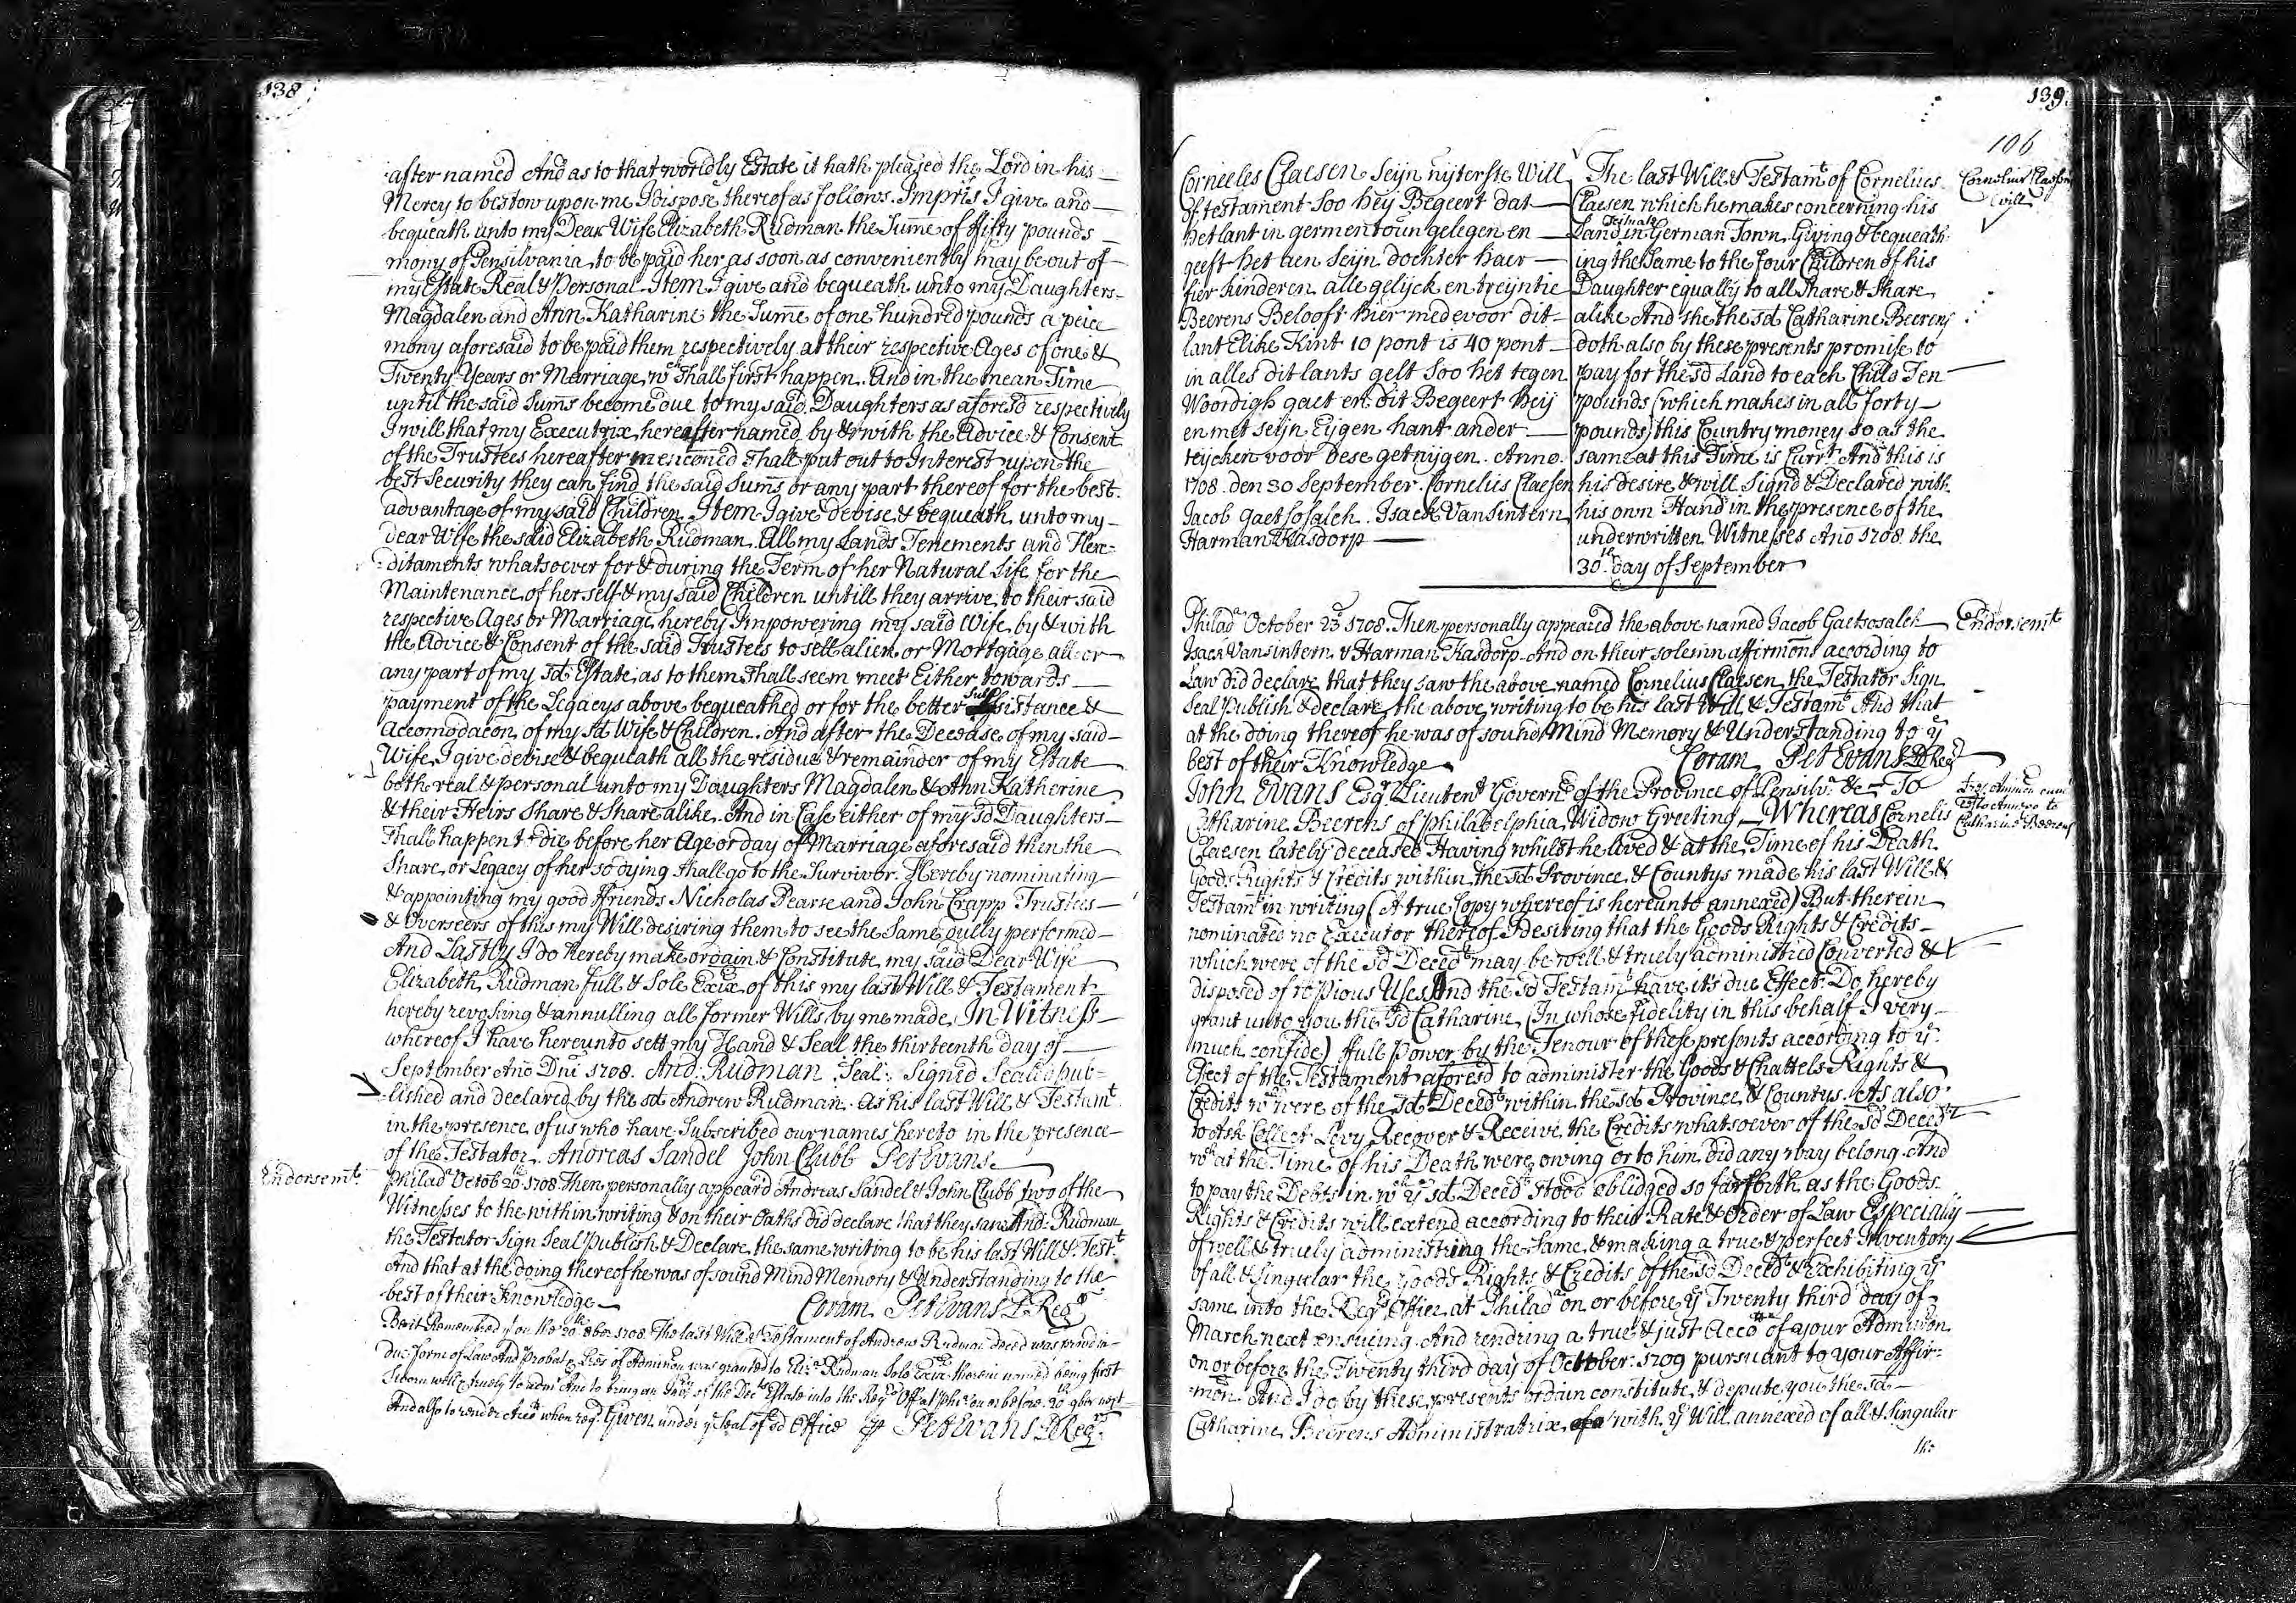 138
after named And as to that worldly Estate it hath pleased the Lord in his
Mercy to bestow upon me I dispose thereof as follows. Impris I give and
bequeath unto my Dear Wife Elizabeth Rudman the Sume of ffifty pounds
mony of Pensilvania to be paid her as soon as conveniently may be out of
my Estate Real & Personal. Item I give and bequeath unto my Daughters
Magdalen and Ann Katharine the Sume of one hundred pounds a peice
mony aforesaid to be paid them respectively at their respective Ages of one &
Twenty Years or Marriage wch shall first happen. And in the mean Time
until the said Sums become due to my said Daughters as aforesd respectively
I will that my Executrix hereafter named by & with the Advice & Consent
of the Trustees hereafter mencioned shall put out to Interest upon the
best Security they can find the said Sums or any part thereof for the best
advantage of my said Children. Item I give devise & bequeath unto my
dear Wife the said Elizabeth Rudman All my Lands Tenements and Here=
=ditaments whatsoever for & during the Term of her Natural Life for the
Maintenance of her self & my said Children untill they arrive to their said
respective Ages or Marriage hereby Impowering my said Wife by & with
the Advice & Consent of the said Trustees to sell alien or Mortgage all or
any part of my sd Estate as to them shall seem meet Either towards
payment of the Legacys above bequeathed or for the better Subsistance &
Accomodacon of my sd Wife & Children. And after the Decease of my said
Wife I give devise & bequeath all the residue & remainder of my Estate
both real & personal unto my Daughters Magdalen & Ann Katherine
& their Heirs Share & Share alike. And in Case either of my sd Daughters
shall happen to die before her Age or day of Marriage aforesaid then the
Share or Legacy of her so dying shall go to the Survivor. Hereby nominating
& appointing my good ffriends Nicholas Pearse and John Crapp Trustees
& Overseers of this my Will desiring them to see the Same duely performed
And Lastly I do hereby make ordain & Constitute my said Dear Wife
Elizabeth Rudman full & Sole Exix of this my last Will & Testament
hereby revoking & annulling all former Wills by me made In Witness
whereof I have hereunto sett my Hand & Seal the thirteenth day of
September Ano Dni 1708. And: Rudman Seal. Signed Sealed pub=
=lished and declared by the sd Andrew Rudman as his last Will & Testamt
in the presence of us who have Subscribed our names hereto in the presence
of the Testator. Andreas Sandel John Clubb Pet Evans
Endorsemt.
Philad Octob 20th 1708. Then personally appeard Andreas Sandel & John Clubb two of the
Witnesses to the within writing & on their Oaths did declare that they saw And: Rudman
the Testator Sign Seal Publish & Declare the same writing to be his last Will & Testt
And that at the doing thereof he was of sound Mind Memory & Understanding to the
best of their Knowledge
Coram Pet Evans D Regr
Be it Remembred yt on the 20th 8ber 1708. The last Will & Testament of Andrew Rudman decd was proved in
due form of Law And Probat & Lres of Admincon was granted to Eliza Rudman Sole Exix therein named being first
Sworn well & truely to admr And to bring an Invy of the Decds Estate into the Regrs Off at Phia on or before 20th 9ber next
And also to render Acct when reqd. Given under ye Seal of sd Office Pet Evans D Regr
139
106
Cornelius Classon
Will
Corneeles Claesen Seijn uijterste Will
of testament Soo heij Begeert dat
het lant in germentoun gelegen en
geeft het aen Seijn dochter haer
fier kinderen alle gelijck en treijntie
Beerens Belooft hier mede voor dit
lant Elike Kint 10 pont is 40 pont
in alles dit lants gelt Soo het tegen
Woordigh gaet en dit Begeert heij
en met seijn Eijgen hant onder
teijcken voor Dese getuijgen. Anno
1708. den 30 September. Cornelius Claesen
Jacob gaetsosalch. Isack Vansintern
Harman Kasdorp
The last Will & Testamt of Cornelius
Claesen which he makes concerning his
Land Scituate in German Town. Giving & bequeath
ing the Same to the four Children of his
Daughter equally to all Share & Share
alike And she the sd Catharine Beerens
doth also by these presents promise to
pay for the sd Land to each Child Ten
pounds (which makes in all forty
pounds) this Country money so as the
same at this Time is Currt And this is
his desire & will Signd & Declared with
his own Hand in the presence of the
underwritten Witnesses Ano 1708 the
30th day of September
Philad October 23d 1708. Then personally appeared the above named Jacob Gaetsosalch
Endorsemt
Isack Vansintern & Harman Kasdorp And on their solemn affirmons according to
Law did declare that they saw the above named Cornelius Claesen the Testator Sign
Seal Publish & declare the above writing to be his last Will & Testamt And that
at the doing thereof he was of sound Mind Memory & Understanding to ye
best of their Knowledge
Coram Pet Evans D Regr
John Evans Esqr Lieutent Governr of the Province of Pensilva &c To
Lres Admincon cum
testo Annexo to
Catharine Beerens
Catharine Beerens of Philadelphia Widow Greeting Whereas Cornelis
Claesen lately deceased Having whilst he lived & at the Time of his Death
Goods Rights & Credits within the sd Province & Countys made his last Will &
Testamt in writing (A true Copy whereof is hereunto annexed) But therein
nominated no Executor thereof I desiring that the Goods Rights & Credits
which were of the sd Decedt may be well & truely administred Converted &
disposed of to Pious Uses And the sd Testamt have its due Effect Do hereby
grant unto you the sd Catharine (In whose fidelity in this behalf I very
much confide) ffull Power by the Tenour of these presents according to ye
Efect of the Testament aforesd to administer the Goods & Chattels Rights &
Credits wch were of the sd Decedt within the sd Province & Countys. As also
to Ask Collect Levy Recover & Receive the Credits whatsoever of the sd Decedt
wch at the Time of his Death were owing or to him did any way belong And
to pay the Debts in wch ye sd Decedt stood oblidged so far forth as the Goods
Rights & Credits will extend according to their Rate & Order of Law Especially
of well & truely administring the Same & making a true & perfect Inventory
of all & Singular the Goods Rights & Credits of the sd Decedt & Exhibiting ye
same into the Regrs Office at Philad on or before ye Twenty third day of
March next ensuing. And rendring a true & just Acco of your Admincon
on or before the Twenty third day of October: 1709 pursuant to your Affir=
=mon. And I do by these presents ordain constitute & depute you the sd
Catharine Beerens Administratrix with ye Will annexed of all & Singular
the